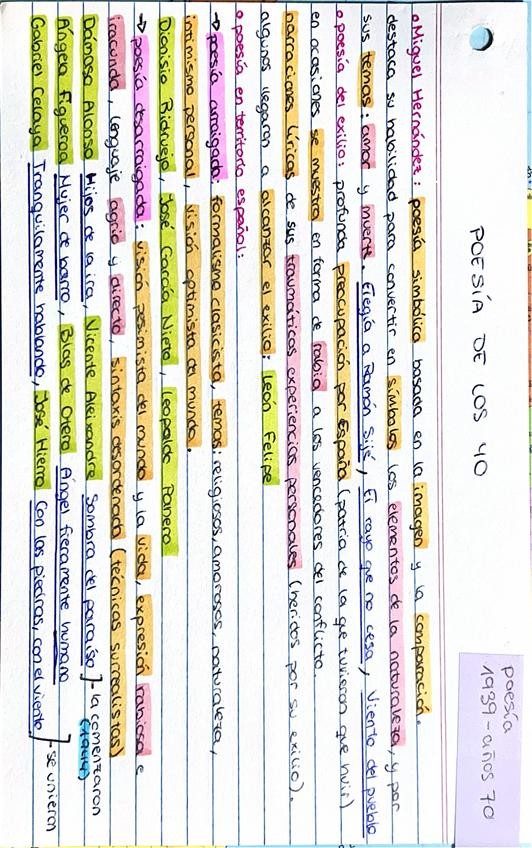 POESÍA DE LOS 40
poesía
1939-años 70
o Miguel Hernández: poesía simbólica basada en la imagen y la comparación.
destaca su habilidad para convertir en símbolos los elementos de la naturaleza, y por
sus temas: amor y muerte. Elegía a Ramón Sijé, El rayo que no cesa, Viento del pueblo
o poesía del exilio: profunda preocupación por España (patria de la que tuvieron que huir)
en ocasiones se muestra en forma de rabia a los vencedores del conflicto.
narraciones líricas de sus traumáticas experiencias personales (heridos por su exilio).
algunos llegaron a alcanzar el exilio: León Felipe
o poesía en territorio español:
→ poesía arraigada: formalismo clasicista, temas: religiosos, amorosos, naturaleza,
intimismo personal, visión optimista del mundo.
Dionisio Ridruejo, José García Nieto, Leopoldo Panero
→ poesía desarraigada: visión pesimista del mundo y la vida, expresión rabiosa e
iracunda, lenguaje agrio y directo, sintaxis desordenada (técnicas surrealistas)
Dámaso Alonso Hijos de la ira, Vicente Aleixandre Sombra del paraíso ] - la comenzaron (1944)
Ángela Figueroa Mujer de barro, Blas de Otero Ángel fieramente humano
Gabriel Celaya Tranquilamente hablando, José Hierro Con las piedras, con el viento ] - se unieron